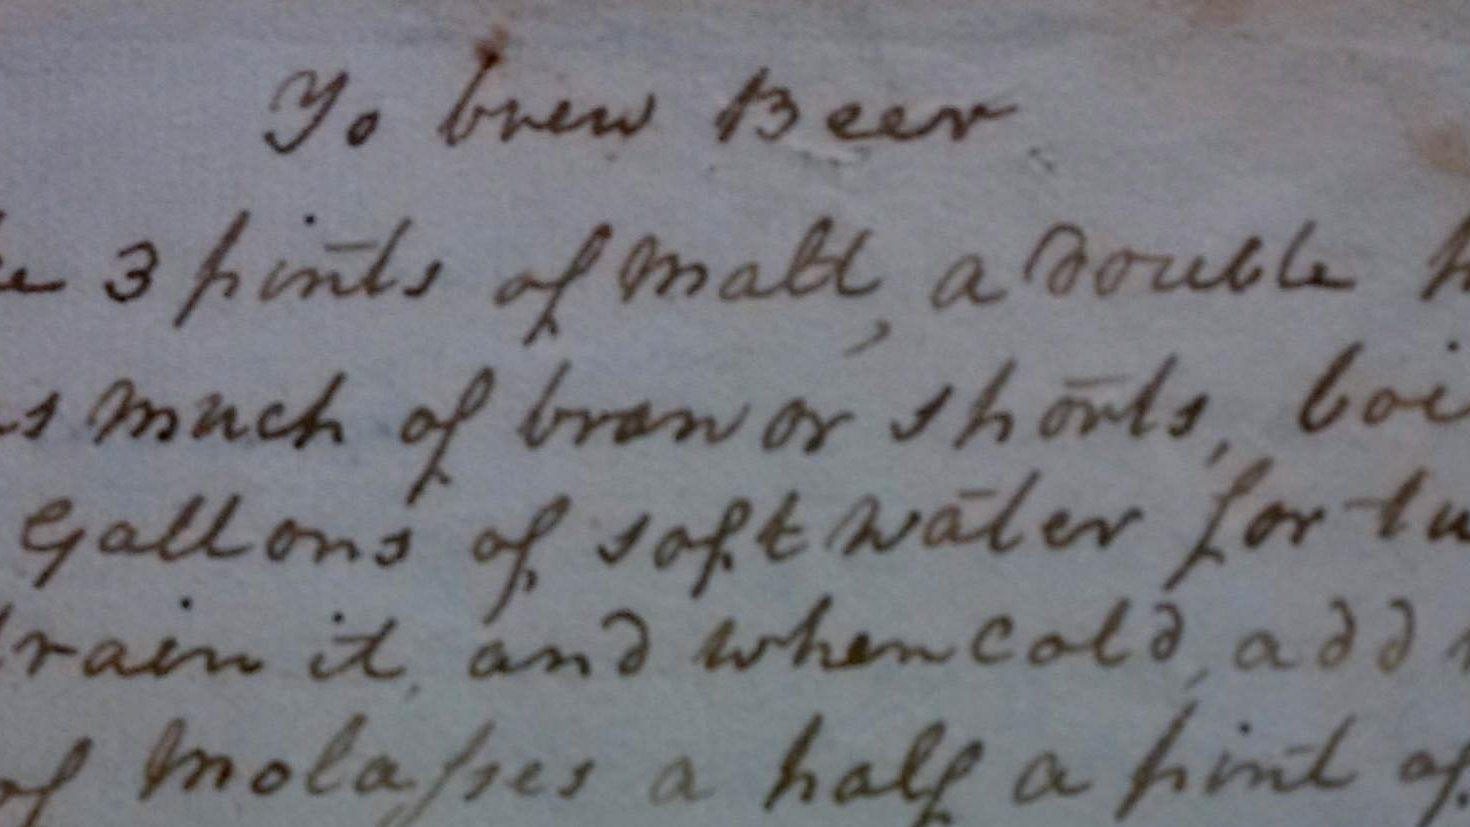 To brew Beer
3 pints of Malt, a double
much of bran or shorts,
Gallons of soft water for
it, and when cold, add
of Molasses a half a pint of